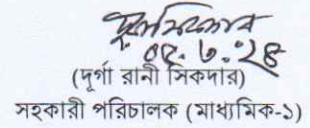 (দূর্গা রানী সিকদার)
সহকারী পরিচালক (মাধ্যমিক-১)